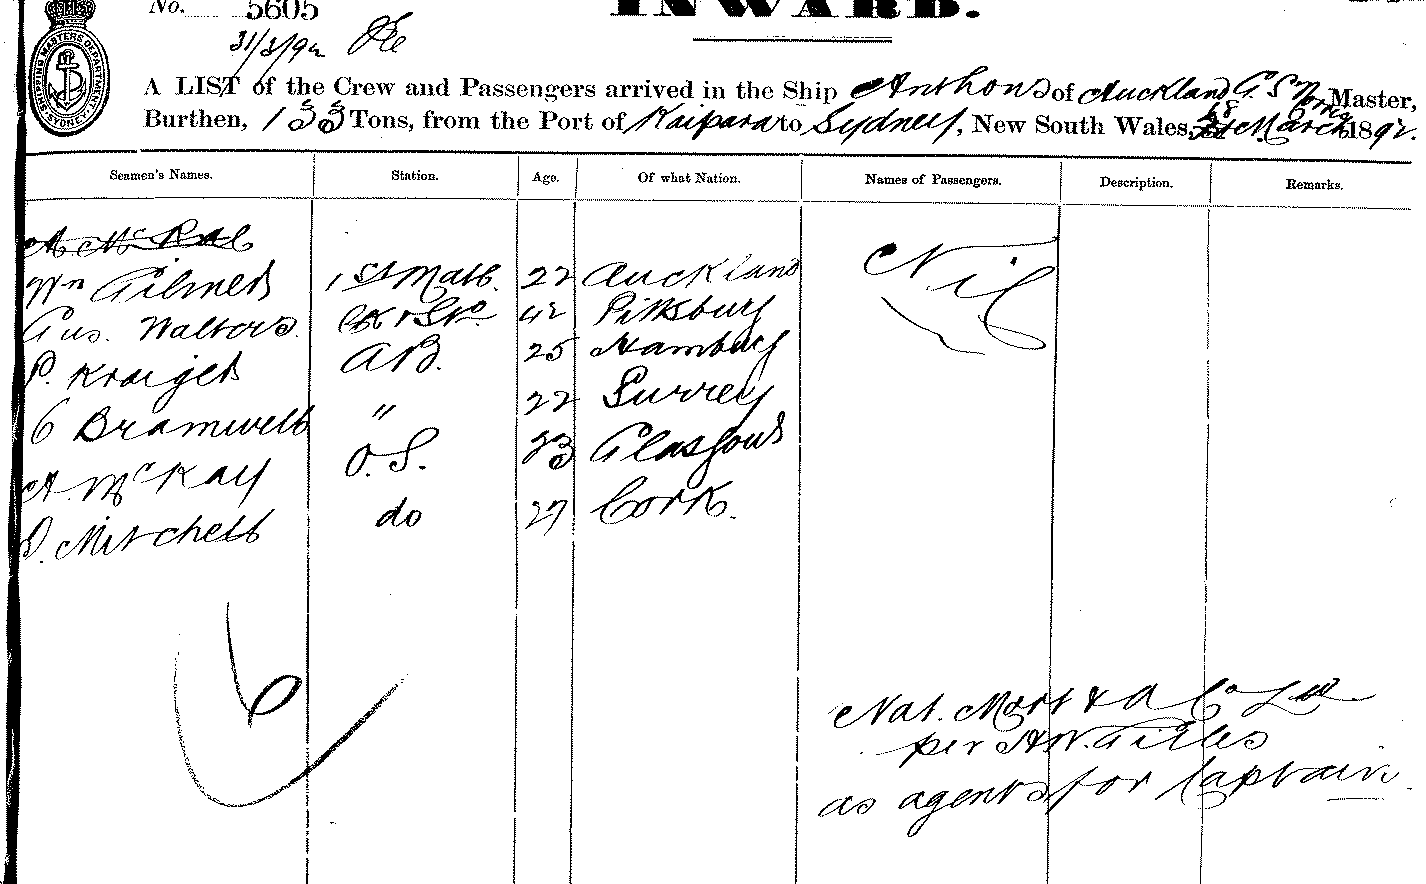 No. 5605
INWARD.
31/3/92
SHIPPING MASTERS DEPARTMENT SYDNEY
A LIST of the Crew and Passengers arrived in the Ship Anthons of Auckland G. S. Norris Master,
Burthen, 133 Tons, from the Port of Kaipara to Sydney, New South Wales, 28 March 1892.
Seamen's Names. Station. Age. Of what Nation. Names of Passengers. Description. Remarks.
A McRae
Wm Gilmer 1st Mate. 22 Auckland Nil
Gus. Walters Ck & Std 42 Pittsburg
P. Kroiger AB. 25 Hamburg
C Bramwell " 22 Surrey
A. McKay O.S. 23 Glasgow
D. Mitchell do 27 Cork.
6
Nat. Mort & A Co Ld
per AW. Giles
as agents for Captain